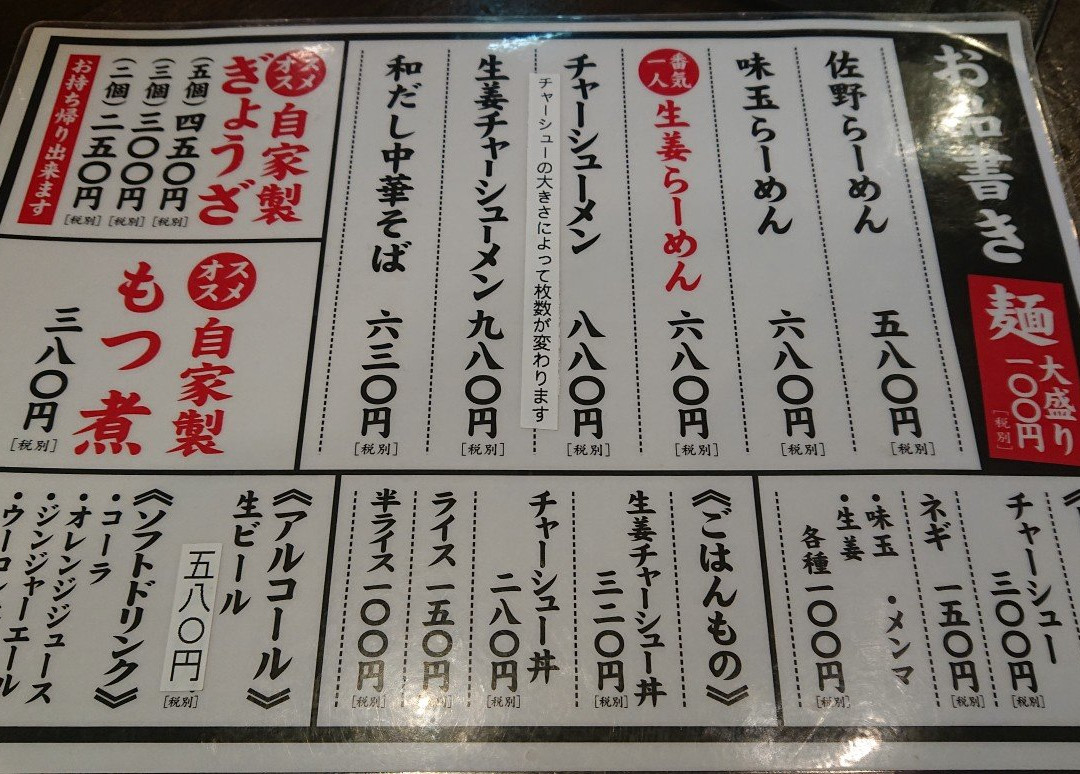 お品書き
麺
大盛り
一〇〇円
[税別]
佐野らーめん 五八〇円
[税別]
味玉らーめん 六八〇円
[税別]
一番人気
生姜らーめん 六八〇円
[税別]
チャーシューメン 八八〇円
[税別]
チャーシューの大きさによって枚数が変わります
生姜チャーシューメン 九八〇円
[税別]
和だし中華そば 六三〇円
[税別]
オススメ
自家製
ぎょうざ
(五個) 四五〇円
[税別]
(三個) 三〇〇円
[税別]
(二個) 二五〇円
[税別]
お持ち帰り出来ます
オススメ
自家製
もつ煮
三八〇円
[税別]
チャーシュー
三〇〇円
[税別]
ネギ 一五〇円
[税別]
・味玉 ・メンマ
・生姜
各種 一〇〇円
[税別]
《ごはんもの》
生姜チャーシュー丼
三二〇円
[税別]
チャーシュー丼
二八〇円
[税別]
ライス 一五〇円
[税別]
半ライス 一〇〇円
[税別]
《アルコール》
生ビール
五八〇円
[税別]
《ソフトドリンク》
・コーラ
・オレンジジュース
・ジンジャーエール